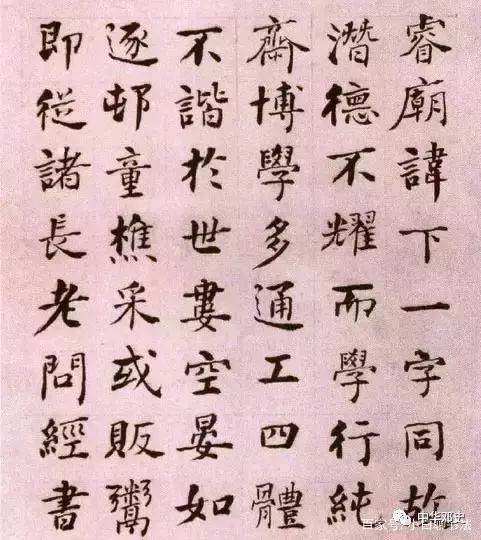 睿廟諱下一字同故
潛德不耀而學行純
齋博學多通工四體
不諧於世婁空晏如
逐邨童樵采或販鬻
即從諸長老問經書
中华邓史